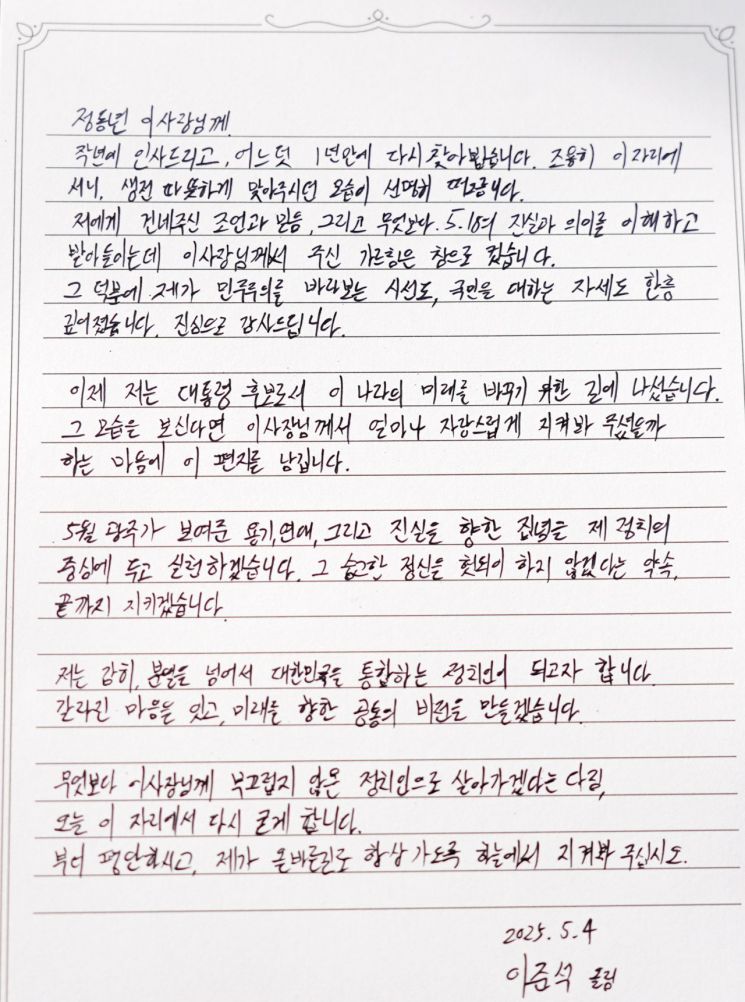 정동년 이사장님께
작년에 인사드리고, 어느덧 1년만에 다시 찾아뵙습니다. 조용히 이 자리에
서니, 생전 따뜻하게 맞아주시던 모습이 선명히 떠오릅니다.
저에게 건네주신 조언과 믿음, 그리고 무엇보다. 5.18의 진실과 의미를 이해하고
받아들이는데 이사장님께서 주신 가르침은 참으로 컸습니다.
그 덕분에 제가 민주주의를 바라보는 시선도, 국민을 대하는 자세도 한층
깊어졌습니다. 진심으로 감사드립니다.
이제 저는 대통령 후보로서 이 나라의 미래를 바꾸기 위한 길에 나섰습니다.
그 모습을 보신다면 이사장님께서 얼마나 자랑스럽게 지켜봐 주셨을까
하는 마음에 이 편지를 남깁니다.
5월 광주가 보여준 용기, 연대, 그리고 진실을 향한 집념을 제 정치의
중심에 두고 실천하겠습니다. 그 숭고한 정신을 헛되이 하지 않겠다는 약속,
끝까지 지키겠습니다.
저는 감히, 분열을 넘어서 대한민국을 통합하는 정치인이 되고자 합니다.
갈라진 마음을 잇고, 미래를 향한 공통의 비전을 만들겠습니다.
무엇보다 이사장님께 부끄럽지 않은 정치인으로 살아가겠다는 다짐,
오늘 이 자리에서 다시 굳게 합니다.
부디 평안하시고, 제가 올바른길로 항상 가도록 하늘에서 지켜봐 주십시오.
2025. 5. 4
이준석 올림